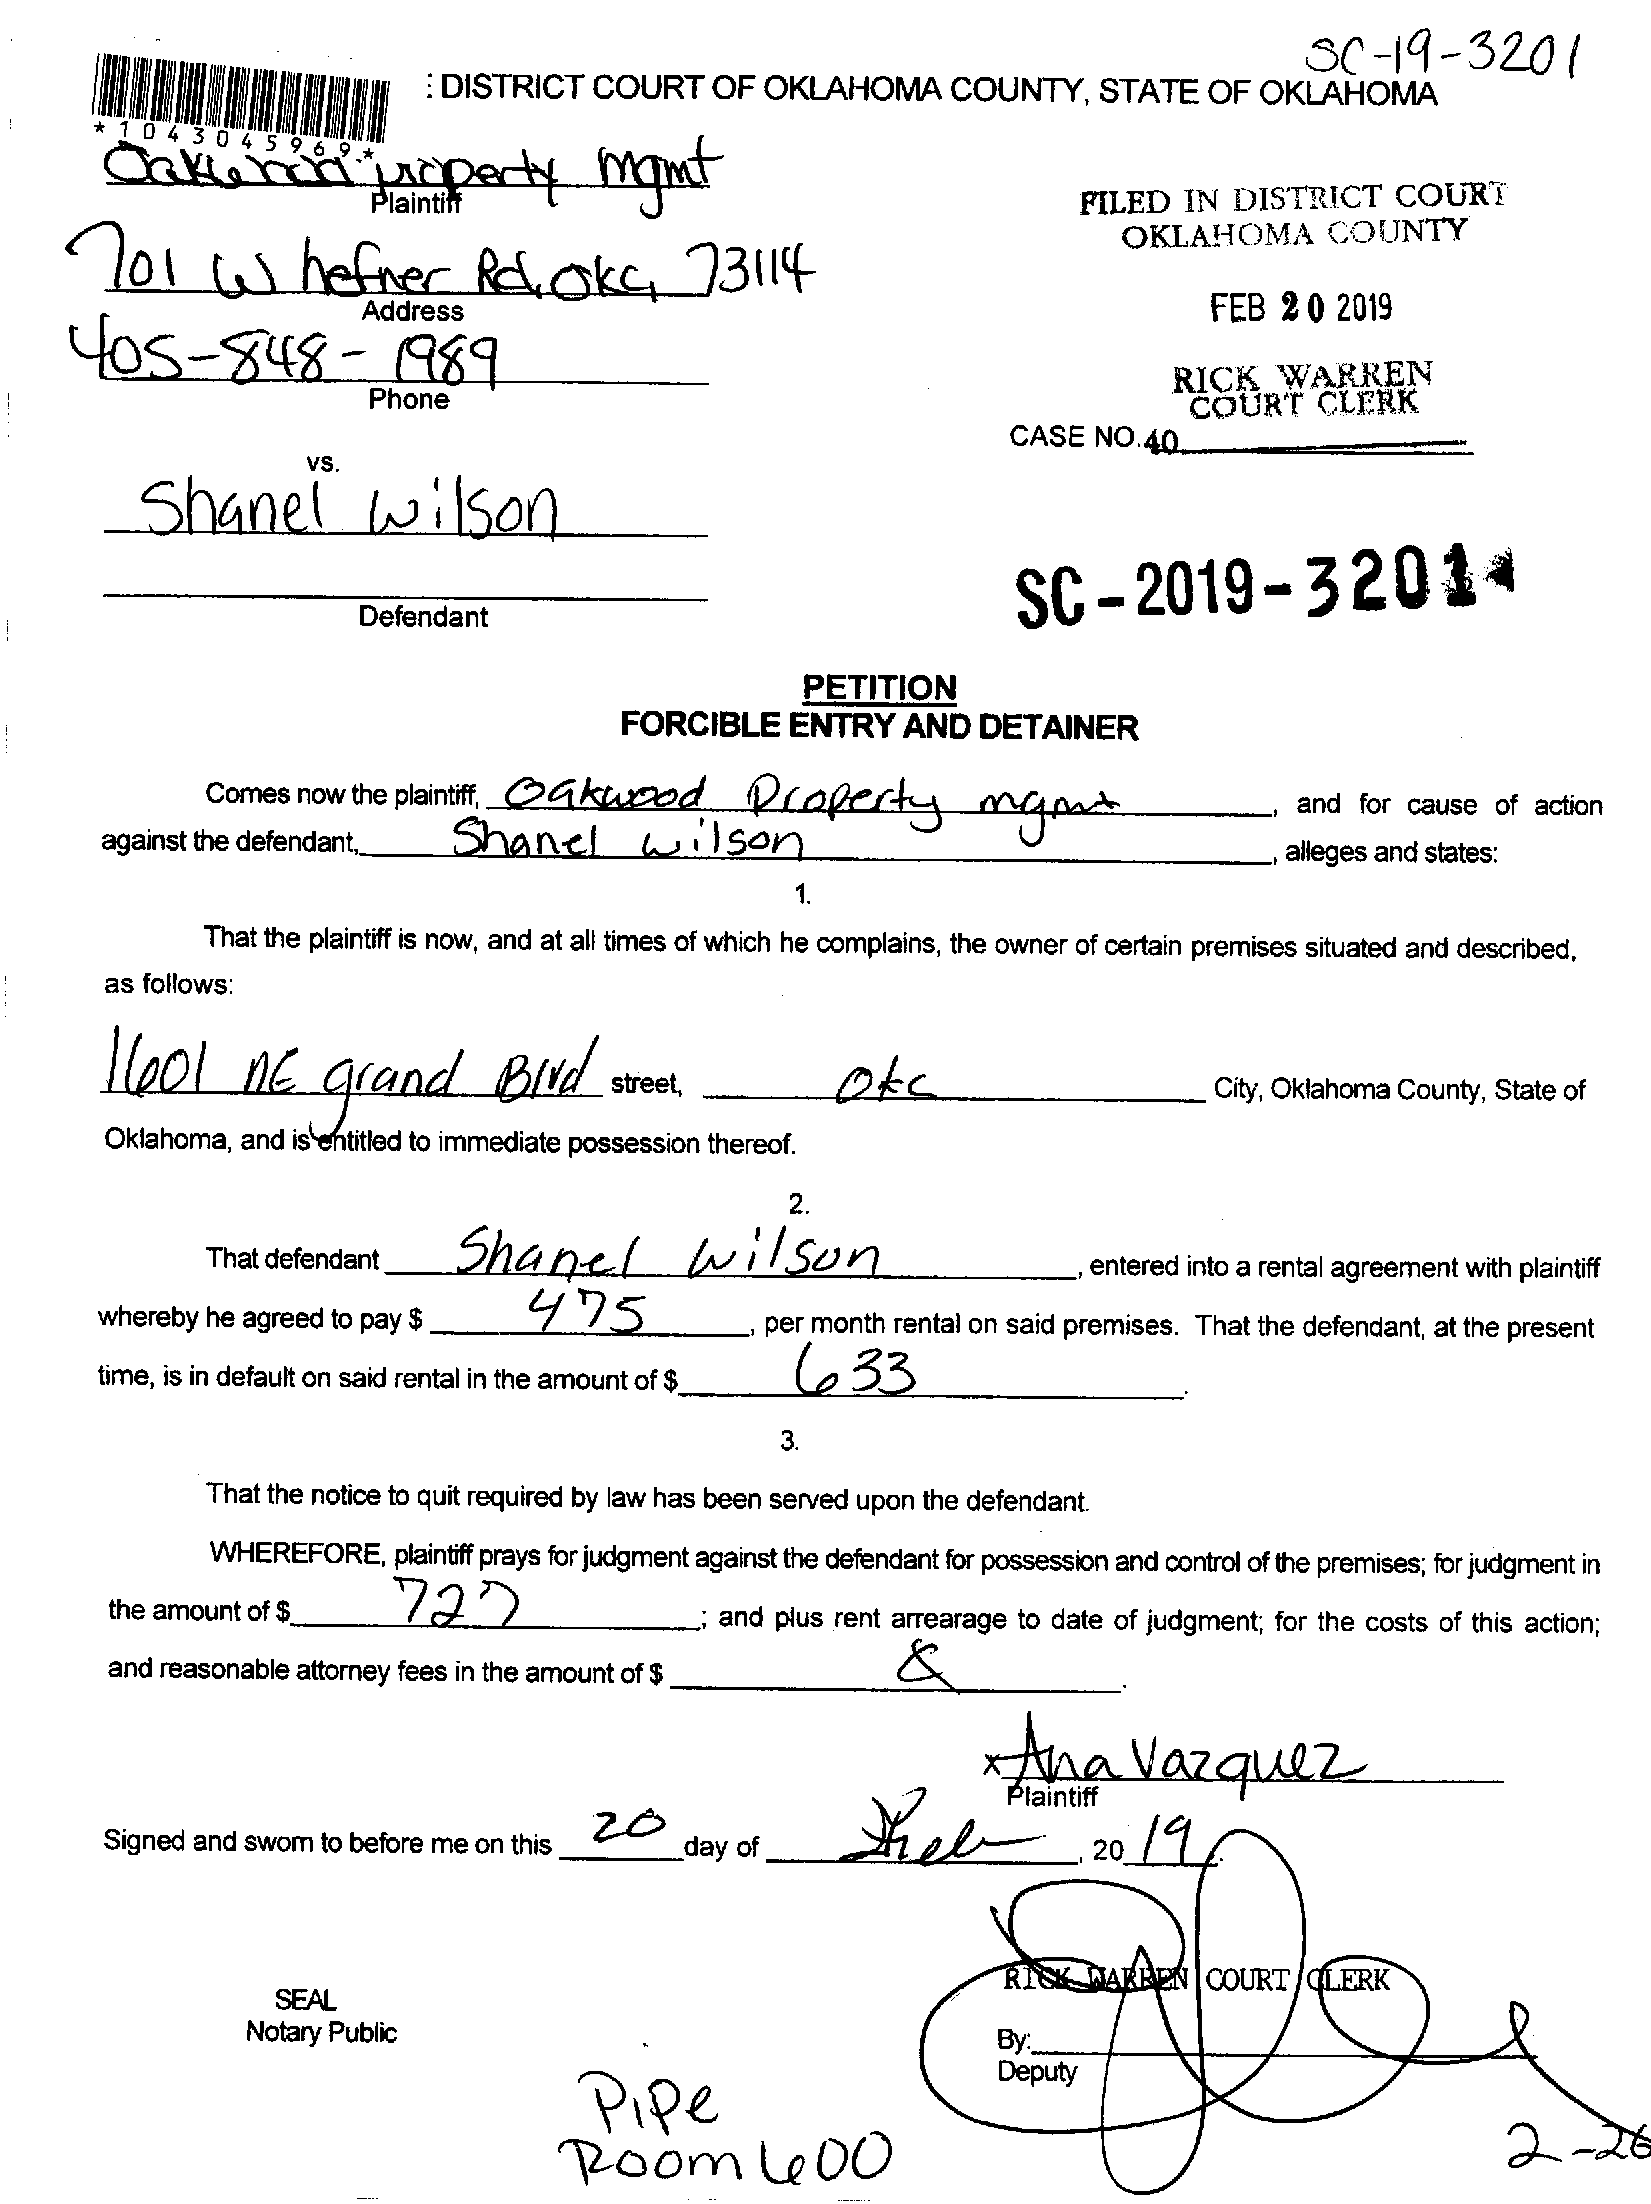 SC-19-3201
: DISTRICT COURT OF OKLAHOMA COUNTY, STATE OF OKLAHOMA
*1043045969*
property mgmt
Plaintiff
FILED IN DISTRICT COURT
OKLAHOMA COUNTY
701 W hefner Rd, OKC, 73114
Address
FEB 20 2019
405-848-1989
Phone
RICK WARREN
COURT CLERK
CASE NO. 40
vs.
Shanel Wilson
Defendant
SC-2019-3201
PETITION
FORCIBLE ENTRY AND DETAINER
Comes now the plaintiff, Oakwood Property mgmt, and for cause of action
against the defendant, Shanel Wilson, alleges and states:
1.
That the plaintiff is now, and at all times of which he complains, the owner of certain premises situated and described,
as follows:
1601 NE grand Blvd street, OKC City, Oklahoma County, State of
Oklahoma, and is entitled to immediate possession thereof.
2.
That defendant Shanel Wilson, entered into a rental agreement with plaintiff
whereby he agreed to pay $ 475, per month rental on said premises. That the defendant, at the present
time, is in default on said rental in the amount of $ 633.
3.
That the notice to quit required by law has been served upon the defendant.
WHEREFORE, plaintiff prays for judgment against the defendant for possession and control of the premises; for judgment in
the amount of $ 727; and plus rent arrearage to date of judgment; for the costs of this action;
and reasonable attorney fees in the amount of $ .
x Ana Vazquez
Plaintiff
Signed and sworn to before me on this 20 day of , 20 19.
RICK WARREN COURT CLERK
SEAL
Notary Public
By:
Deputy
Pipe
Room 600
2-26